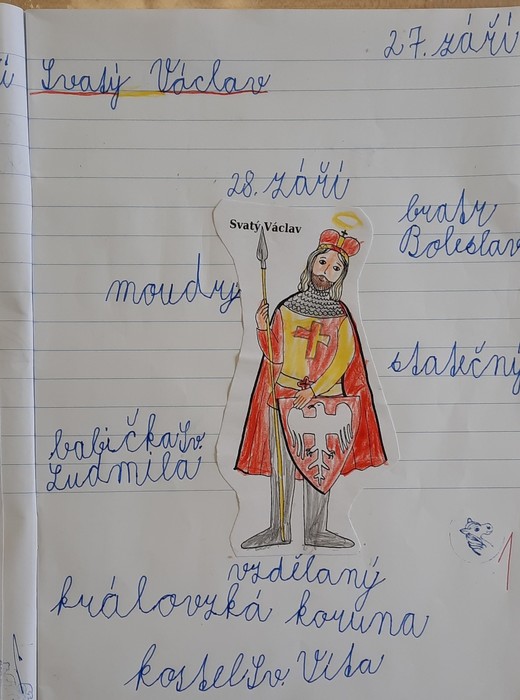 27. září
Svatý Václav
28. září
Svatý Václav
bratr
Boleslav
moudrý
statečný
babička Sv.
Ludmila
vzdělaný
královzká koruna
kostel Sv. Víta
1